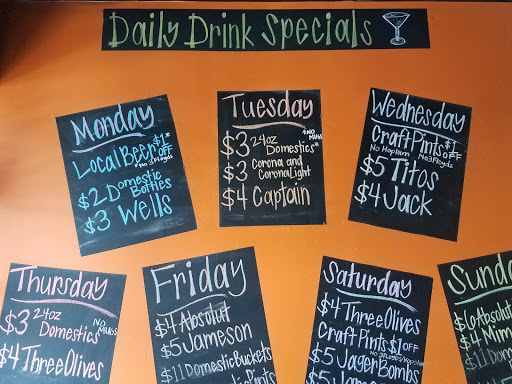 Daily Drink Specials
Monday
Local Beer $1 OFF*
*No 3 Floyds
$2 Domestic Bottles
$3 Wells
Tuesday
$3 24oz Domestics*
*NO MUGS
$3 Corona and Corona Light
$4 Captain
Wednesday
Craft Pints $1 OFF
No Hopfarm No 3 Floyds
$5 Titos
$4 Jack
Thursday
$3 24oz Domestics
NO MUGS
$4 Three Olives
Friday
$4 Absolut
$5 Jameson
$11 Domestic Buckets
Pints
Saturday
$4 Three Olives
Craft Pints $1 OFF
$5 Jager Bombs
$11 Domes
Sund
$6 Absolut
$4 Mim
$11 Dome
$5